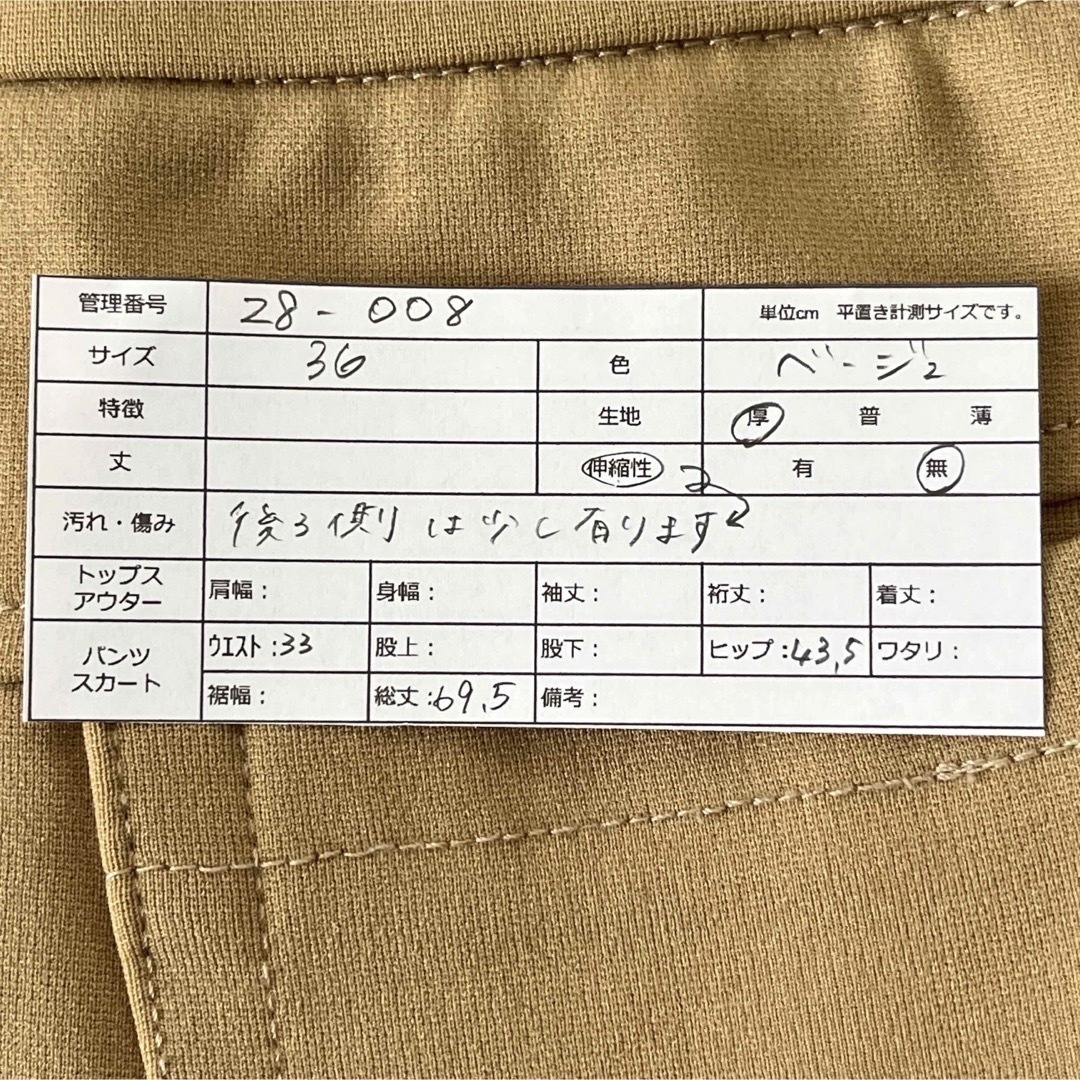 管理番号 28-008 単位cm 平置き計測サイズです。
サイズ 36 色 ベージュ
特徴 生地 厚 普 薄
丈 伸縮性 有 無
汚れ・傷み 後ろ側は少し有ります
トップス
アウター 肩幅： 身幅： 袖丈： 裄丈： 着丈：
パンツ
スカート ウエスト：33 股上： 股下： ヒップ：43,5 ワタリ：
裾幅： 総丈：69.5 備考：